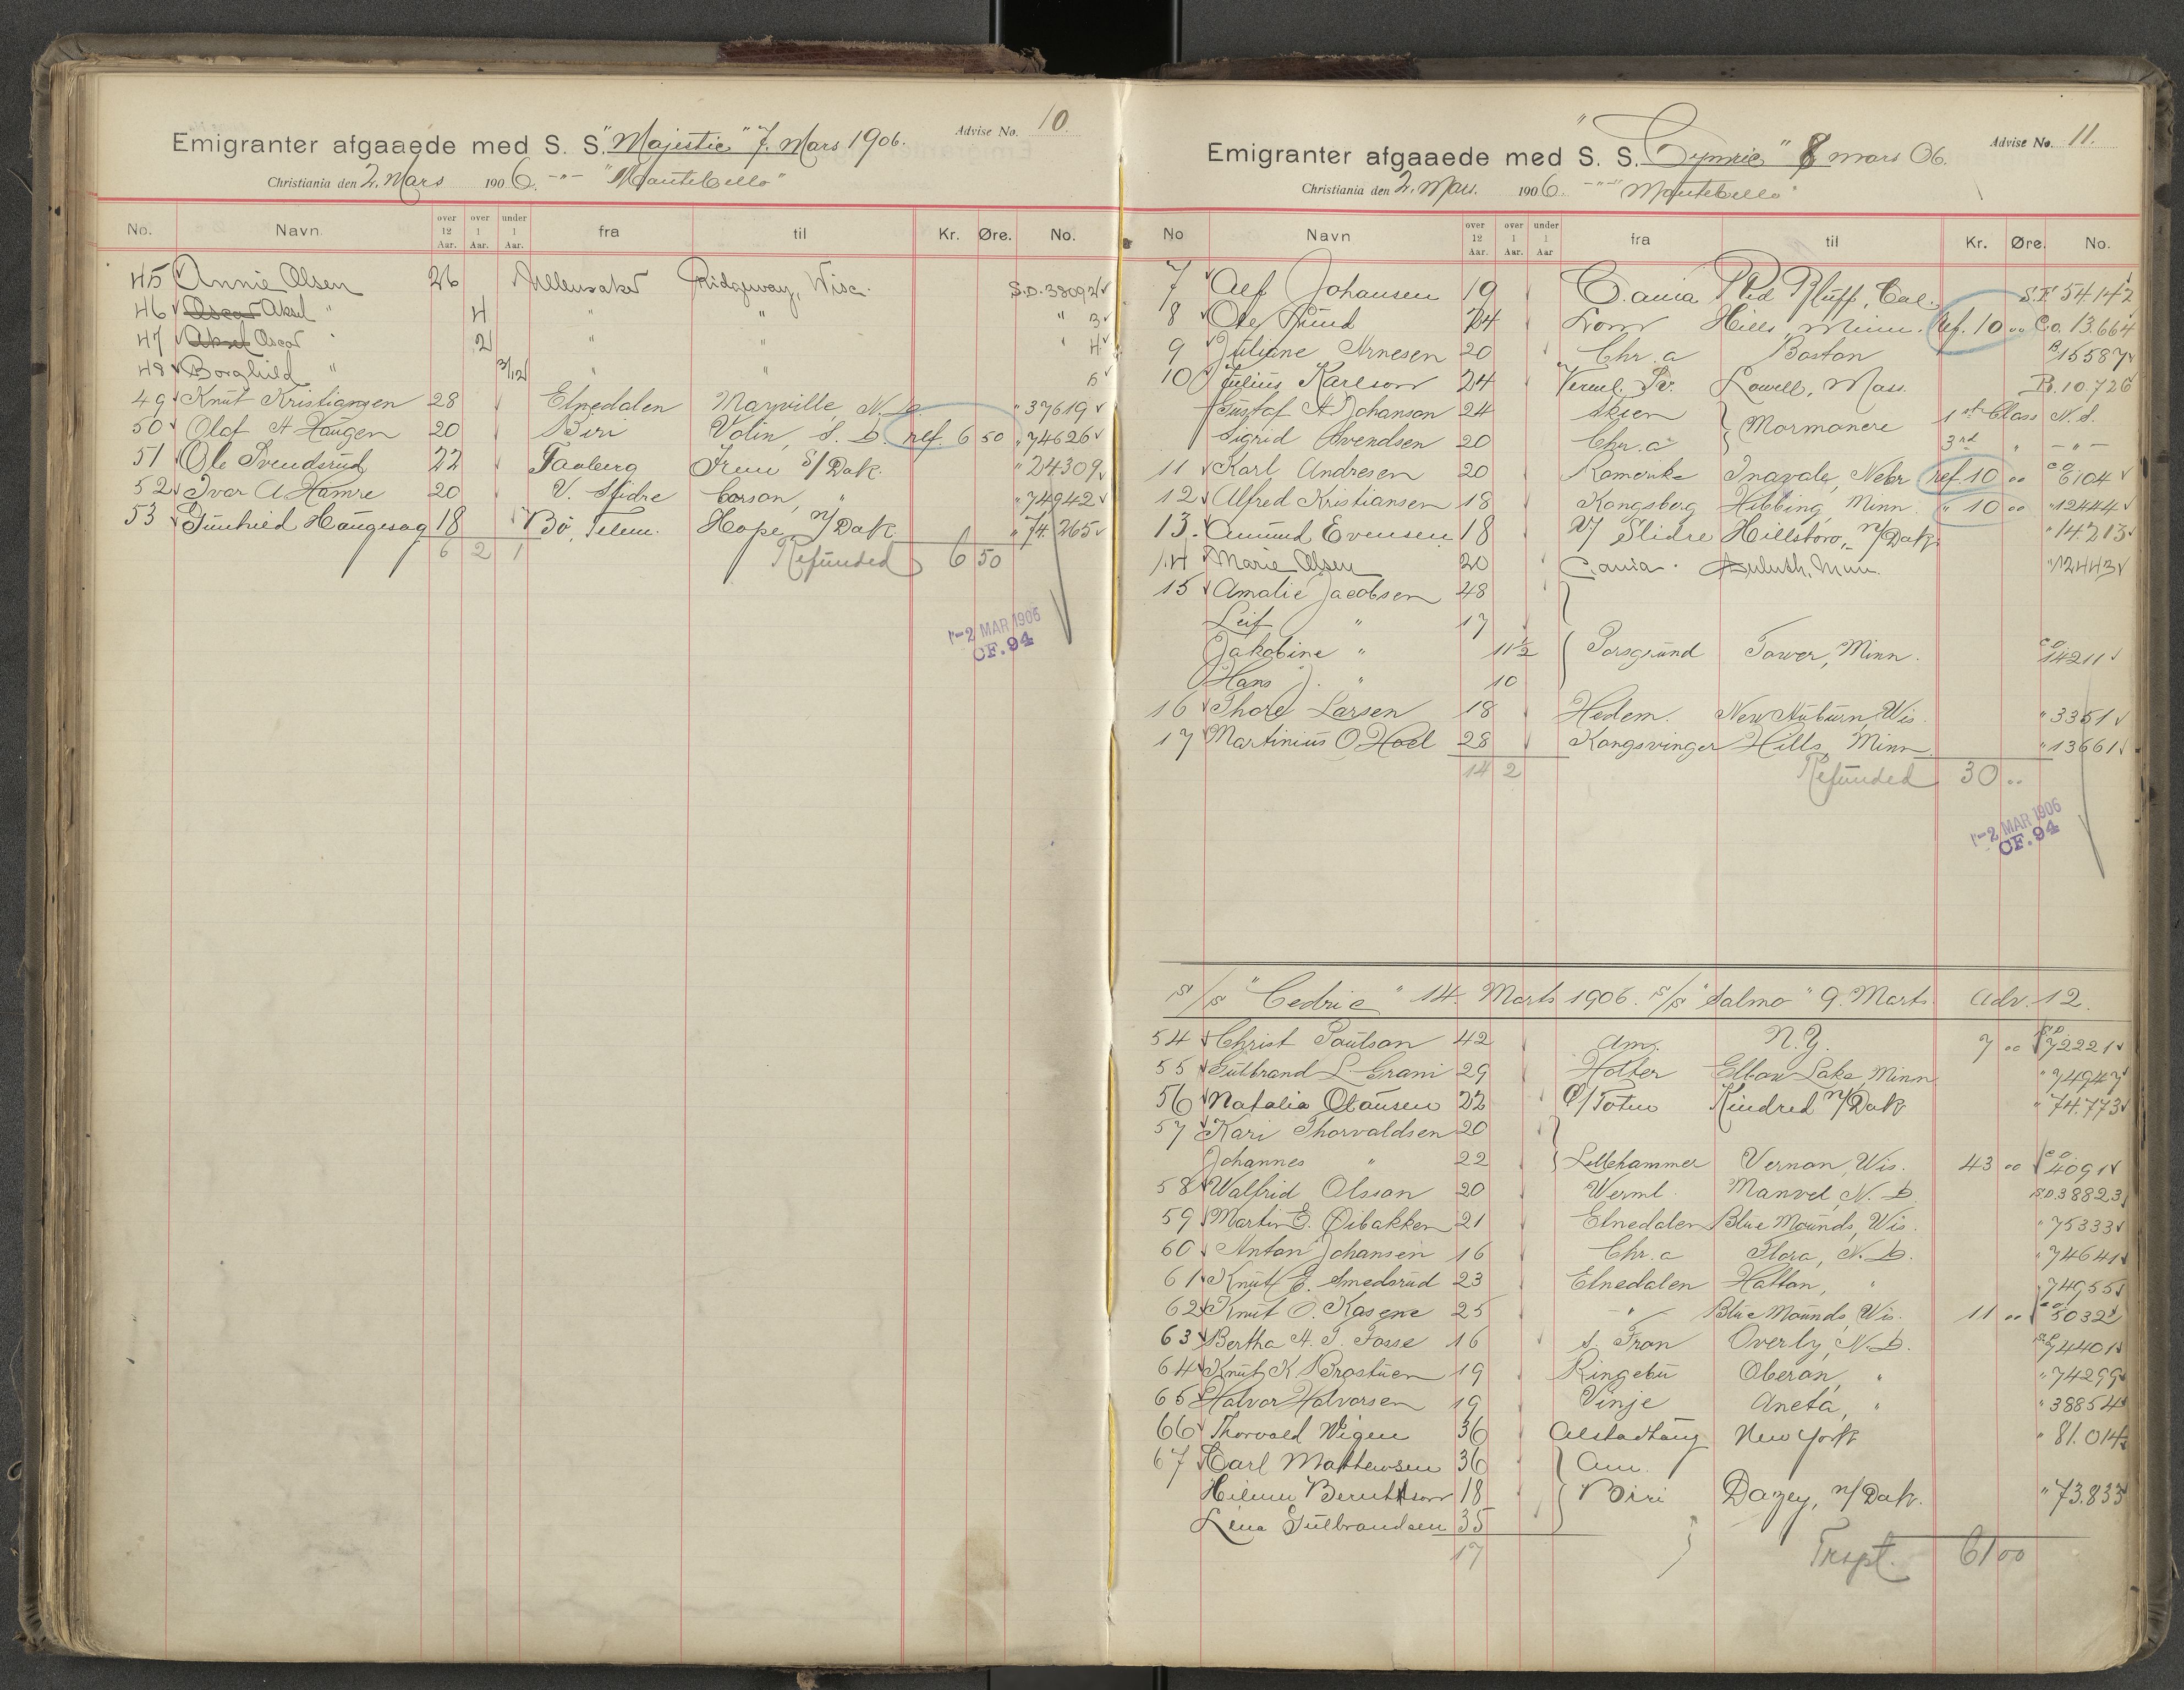 Emigranter afgaaede med S. S. "Majestic" 7. Mars 1906. Advise No. 10.
Christiania den 2. Mars 1906. -"- "Montebello"
No. Navn over 12 Aar. over 1 Aar. under 1 Aar. fra til Kr. Øre. No.
45 Annie Olsen 26 Ullensaker Ridgeway, Wisc. S.D. 38092
46 Oscar Aksel " 4 " " " 3
47 Aksel Oscar " 2 " " " 4
48 Borghild " 3/12 " " 5
49 Knut Kristiansen 28 Etnedalen Mayville, N. D. " 37619
50 Olaf A Haugen 20 Biri Volin, S. D. ref. 6 50 " 74626
51 Ole Svendsrud 22 Faaberg Irene S/Dak. " 24309
52 Ivar A Hamre 20 V. Slidre Corson, " " 74942
53 Gunhild Haugesag 18 Bö, Telem. Hope, N/Dak " 74.265
6 2 1 Refunded 6 50
-2 MAR 1906
OF. 94
Emigranter afgaaede med S. S. "Cymric" 8 mars 06. Advise No. 11.
Christiania den 2. Mars. 1906. -"- "Montebello"
No Navn over 12 Aar. over 1 Aar. under 1 Aar fra til Kr. Øre. No.
7 Alf Johansen 19 C.ania Red Bluff, Cal. S.F. 54142
8 Ole Lund 24 Lom Hills, Minn. ref. 10 00 C.o. 13.664
9 Juliane Arnesen 20 Chr.a Boston B 15587
10 Julius Karlson 24 Verml. Sv. Lowell, Mass. B. 10.726
Gustaf A Johanson 24 Skien } Mormonere 1st Class N.S.
Sigrid Svendsen 20 Chr.a 3rd " -"-
11 Karl Andresen 20 Inavale, Nebr ref. 10 00 C O 6104
12 Alfred Kristiansen 18 Kongsberg Hibbing, Minn. " 10 00 " 12444
13. Amund Evensen 18 V/ Slidre Hillsboro, N/Dak. " 14.213
14 Marie Olsen 20 C.ania. Duluth, Minn. " 12443
15 Amalie Jacobsen 48
Leif " 17
Jakobine " 11 1/2 Porsgrund Tower, Minn. C O 14211
(Hans) . " 10
16 Thore Larsen 18 Hedem. New Auburn, Wis. " 3351
17 Martinius O Hoel 28 Kongsvinger Hills, Minn. " 13661
14 2 Refunded 30 00
-2 MAR 1906
OF. 94
S/S "Cedric" 14. Marts 1906. S/S "Salmo" 9. Marts. Adv. 12.
54 Christ Paulson 42 Am. N.Y. 7 00 S D 72221
55 Gulbrand L. Grani 29 Holter Elbow Lake, Minn " 74947
56 Natalia Olausen 22 Ø/Toten Kindred N/Dak " 74.773
57 Kari Thorvaldsen 20
Johannes " 22 Lillehammer Vernon, Wis. 43 00 C O. 4091
58 Walfrid Olsson 20 Werml. Manvel, N. D. S.D. 38823
59 Martin E. Øibakken 21 Etnedalen Blue Mounds, Wis. " 75333
60 Anton Johansen 16 Chr.a Flora, N. D. " 74641
61 Knut E. Smedsrud 23 Etnedalen Hatton, " " 74955
62 Knut O. Kasene 25 -"- Blue Mounds, Wis. 11 00 C O 5032
63 Bertha H. T. Fosse 16 S. Fron Overly, N. D. S.D. 74401
64 Knut K Brostuen 19 Ringebu Oberon, " " 74299
65 Halvor Halvorsen 19 Vinje Aneta, " " 38854
66 Thorvald Wigen 36 Alstadhaug New York " 81.014
67 Carl Mathewsen 36 Am.
Hilmer Berntson 18 Biri Dazey, N/Dak. " 73.833
Lina Gulbrandsen 35
17 Trspt. 61 00